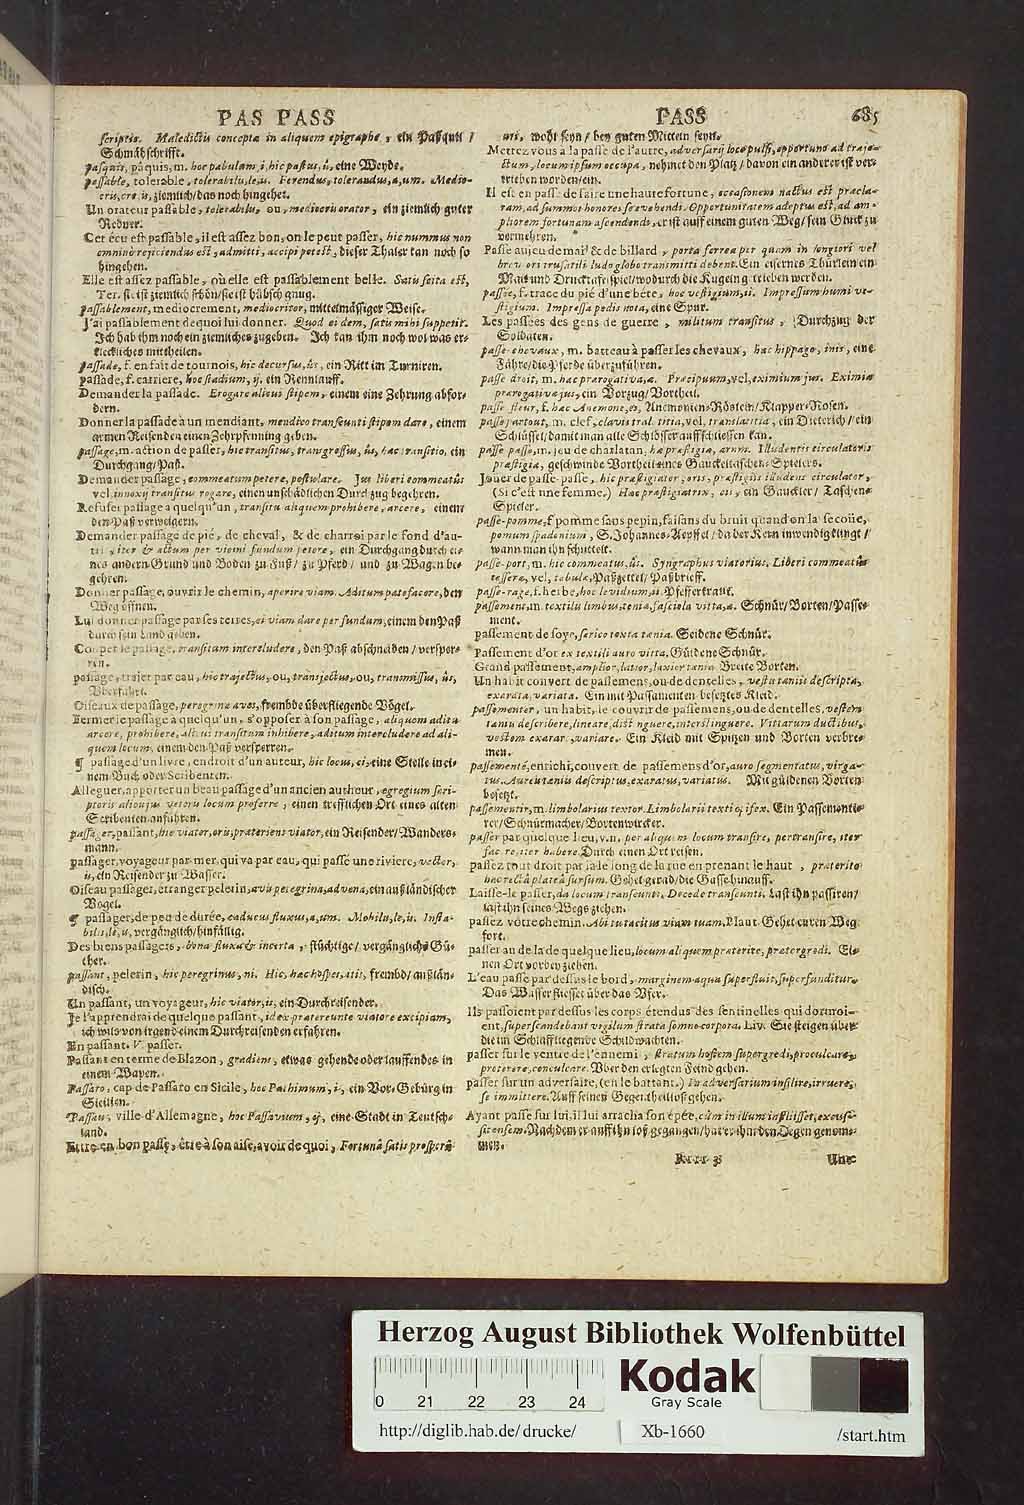 PAS PASS
scriptio. Maledictis concepta in aliquem epigraphe, ein Pasquil /
Schmähschrifft.
pasquis, pâquis, m. hoc pabulum, i, hic pastus, ûs, eine Weyde.
passable, tolerable, tolerabilis, le, is. Ferendus, tolerandus, a, um. Medio-
cris, cre, is, ziemlich / das noch hingehet.
Un orateur passable, tolerabilis ou, mediocris orator, ein ziemlich guter
Redner.
Cet écu est passable, il est assez bon, on le peut passer, hic nummus non
omnino rejiciendus est, admitti, accipi potest, dieser Thaler kan noch so
hingehen.
Elle est assez passable, où elle est passablement belle. Satis scita est,
Ter. sie ist ziemlich schön / sie ist hübsch gnug.
passablement, mediocrement, mediocriter, mittelmässiger Weise.
J'ai passablement dequoi lui donner. Quod ei dem, satis mihi suppetit.
Ich hab ihm noch ein ziemliches zugeben. Ich kan ihm noch wol was er-
kleckliches mittheilen.
passade, f. en fait de tournois, hic decursus, ûs, ein Ritt im Turniren.
passade, f. carriere, hoc stadium, ij. ein Rennlauff.
Demander la passade. Erogare alicui stipem, einem eine Zehrung abfor-
dern.
Donner la passade à un mendiant, mendico transeunti stipem dare, einem
armen Reisenden einen Zehrpfenning geben.
passage, m. action de passer, hic transitus, transgressus, ûs, hac transitio, ein
Durchgang / Paß.
Demander passage, commeatum petere, postulare. Jus liberi commeatûs
vel innoxij transitus rogare, einen unschädlichen Durchzug begehren.
Refuser passage a quelqu'un, transitu aliquem prohibere, arcere, einem
den Paß verweigern.
Demander passage de pié, de cheval, & de charroi par le fond d'au-
tri, iter & actum per vicini fundum petere, ein Durchgang durch ei-
nes andern Grund und Boden zu Fuß / zu Pferd / und zu Wagen be-
gehren.
Donner passage, ouvrir le chemin, aperire viam. Aditum patefacere, den
Weg öffnen.
Lui donner passage par ses terres, ei viam dare per fundum, einem den Paß
durch sein Land geben.
Couper le passage, transitum intercludere, den Paß abschneiden / versper-
ren.
passage, trajet par eau, hic trajectus, ou, transjectus, ou, transmissus, ûs,
Uberfahrt.
Oiseaux de passage, peregrinæ aves, frembde überfliegende Vögel.
Fermer le passage a quelqu'un, s'opposer à son passage, aliquem aditu
arcere, prohibere, alicui transitum inhibere, aditum intercludere ad ali-
quem locum, einem den Paß versperren.
¶ passage d'un livre, endroit d'un auteur, hic locus, ci, eine Stelle in ei-
nem Buch oder Scribenten.
Alleguer, apporter un beau passage d'un ancien autheur, egregium scri-
ptoris alicujus veteris locum proferre, einen trefflichen Ort eines alten
Scribenten anführen.
passager, passant, hic viator, oris, prateriens viator, ein Reisender / Wanders-
mann.
passager, voyageur par mer, qui va par eau, qui passe une riviere, vector,
is, ein Reisender zu Wasser.
Oiseau passager, étranger pelerin, avis peregrina, advena, ein außländischer
Vogel.
¶ passager, de peu de durée, caducus fluxus, a, um. Mobilis, le, is. Insta-
bilis, le, is, vergänglich / hinfällig.
Des biens passagers, bona fluxa & incerta, flüchtige / vergängliche Gü-
ther.
passant, pelerin, hic peregrinus, ni. Hic, hac hospes, itis, frembd / außlän-
disch.
Un passant, un voyageur, hic viator, is, ein Durchreisender.
Je l'apprendrai de quelque passant, id ex pratereunte viatore excipiam,
ich wils von irgend einem Durchreisenden erfahren.
En passant. V. passer.
Passant en terme de Blazon, gradiens, etwas gehende oder lauffendes in
einem Wapen.
Passaro, cap de Passaro en Sicile, hoc Pachinum, i, ein Vor-Gebürg in
Sicilien.
Passau, ville d'Allemagne, hoc Passavium, ij, eine Stadt in Teutsch-
land.
Estre en bon passe, être à son aise, avoir de quoi, Fortunâ satis prosperâ

PASS 685
uti, wohl seyn / bey guten Mitteln seyn.
Mettez vous à la passe de l'autre, adversarij loco pulsi, opportuno ad traje-
ctum, locum ipsum occupa, nehmet den Platz / davon ein anderer ist ver-
trieben worden / ein.
Il est en passe de faire une haute fortune, occasionem nactus est præcla-
ram, ad summos honores se evehendi. Opportunitatem adeptus est, ad am-
pliorem fortunam ascendendi, er ist auff einem guten Weg / sein Glück zu
vermehren.
Passe au jeu de mail & de billard, porta ferrea per quam in longiori vel
breviori trusatili ludo globo transmitti debent. Ein eisernes Thürlein ein
Mail und Drucktafelspiel / wodurch die Kugeln getrieben werden.
passée, f. trace du pié d'une bête, hoc vestigium, ii. Impressum humi ve-
stigium. Impressa pedis nota, eine Spur.
Les passées des gens de guerre, militum transitus, Durchzug der
Soldaten.
passe-chevaux, m. batteau à passer les chevaux, hac hippago, inis, eine
Fähre / die Pferde überzuführen.
passe droit, m. hac prarogativa, a. Pracipuum, vel, eximium jus. Eximia
prarogativa jus, ein Vorzug / Vortheil.
passe fleur, f. hac Anemone, es, Anemonien-Röslein / Klapper-Rosen.
passe partout, m. clef, clavis tralatitia, vel, translatitia, ein Dieterich / ein
Schlüssel / damit man alle Schlösser auffschliessen kan.
passe passe, m. jeu de charlatan, hæ præstigia, arum. Illudentis circulatoris
præstigia, geschwinde Vortheil eines Gauckeltaschen-Spielers.
Jouer de passe-passe, hic præstigiator, oris, præstigiis illudens circulator,
(Si c'est une femme.) Hac præstigiatrix, cis, ein Gauckler / Taschen-
Spieler.
passe-pomme, f. pomme sans pepin, faisans du bruit quand on la secoüe,
pomum spadonium, S. Johannes-Aepffel / da der Kern inwendig klingt /
wann man ihn schüttelt.
passe-port, m. hic commeatus, ûs. Syngraphus viatorius. Liberi commeatûs
tessera, vel, tabula, Paßzettel / Paßbrieff.
passe-rage, f. herbe, hoc levidium, ii. Pfefferkraut.
passement, m. textilis limbus, tenia, fasciola vitta, a. Schnür / Borten / Passe-
ment.
passement de soye, serico texta tania. Seidene Schnür.
Passement d'or ex textili auro vitta, Güldene Schnür.
Grand passement, amplior, latior, laxior tania. Breite Borten.
Un habit convert de passemens, ou de dentelles, vestis taniis descripta,
exarata, variata. Ein mit Passamenten besetztes Kleid.
passementer, un habit, le couvrir de passemens, ou de dentelles, vestem
taniis describere, lineare, distinguere, interstinguere. Vittarum ductibus,
vestem exarare, variare. Ein Kleid mit Spitzen und Borten verbre-
men.
passementé, enrichi, couvert de passemens d'or, auro segmentatus, virga-
tus. Aureis taniis descriptus, exaratus, variatus. Mit güldenen Borten
besetzt.
passementir, m. limbolarius textor. Limbolarii textis opifex. Ein Passementi-
rer / Schnürmacher / Bortenwircker.
passer par quelque lieu, v. n. per aliquem locum transire, pertransire, iter
facere, iter habere. Durch einen Ort reisen.
passez tout droit par la le long de la rue en prenant le haut, praterito
hac rectâ plateâ sursum. Gehet gerad / die Gasse hinauff.
Laisse-le passer, da locum transeunti. Decede transeunti. Last ihn passiren /
last ihn seines Wegs ziehen.
passez vôtre chemin. Abi tu tacitus viam tuam. Plaut. Gehet euren Weg
fort.
passer au de la de quelque lieu, locum aliquem praterire, pratergredi. Ei-
nen Ort vorbey ziehen.
L'eau passe par dessus le bord, marginem aqua superfluit, superfunditur.
Das Wasser fliesset über das Ufer.
Ils passoient par dessus les corps étendus des sentinelles qui dormoi-
ent, superscandebant vigilum strata somno corpora. Liv. Sie steigen über
die im Schlaff liegende Schildwachten.
passer sur le ventre de l'ennemi, stratum hostem supergredi, proculcare,
praterere, conculcare. Uber den erlegten Feind gehen.
passer sur un adversaire, (en le battant.) In adversarium insilire, irruere,
se immittere. Auff seinen Gegentheil loß gehen.
Ayant passé sur lui, il lui arracha son épée, cùm in illum insiluisset, excus-
sit ensem. Nachdem er auff ihn loß gegangen / hat er ihm den Degen genom-
men.
Rrrr 3 Une
Herzog August Bibliothek Wolfenbüttel
0 21 22 23 24
Kodak
Gray Scale
http://diglib.hab.de/drucke/ Xb-1660 /start.htm